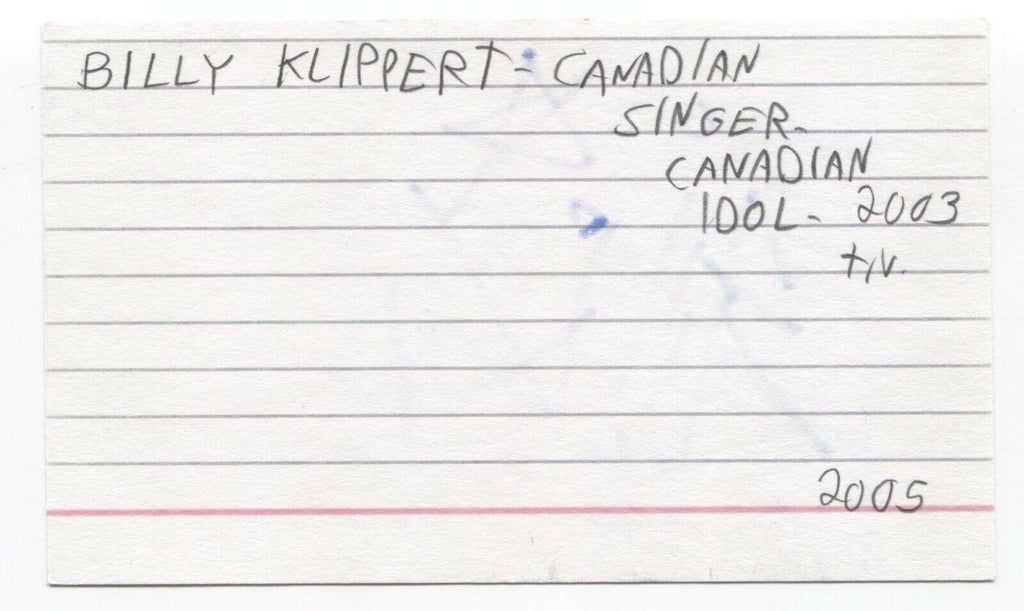 BILLY KLIPPERT - CANADIAN
SINGER -
CANADIAN
IDOL - 2003
t.v.
2005